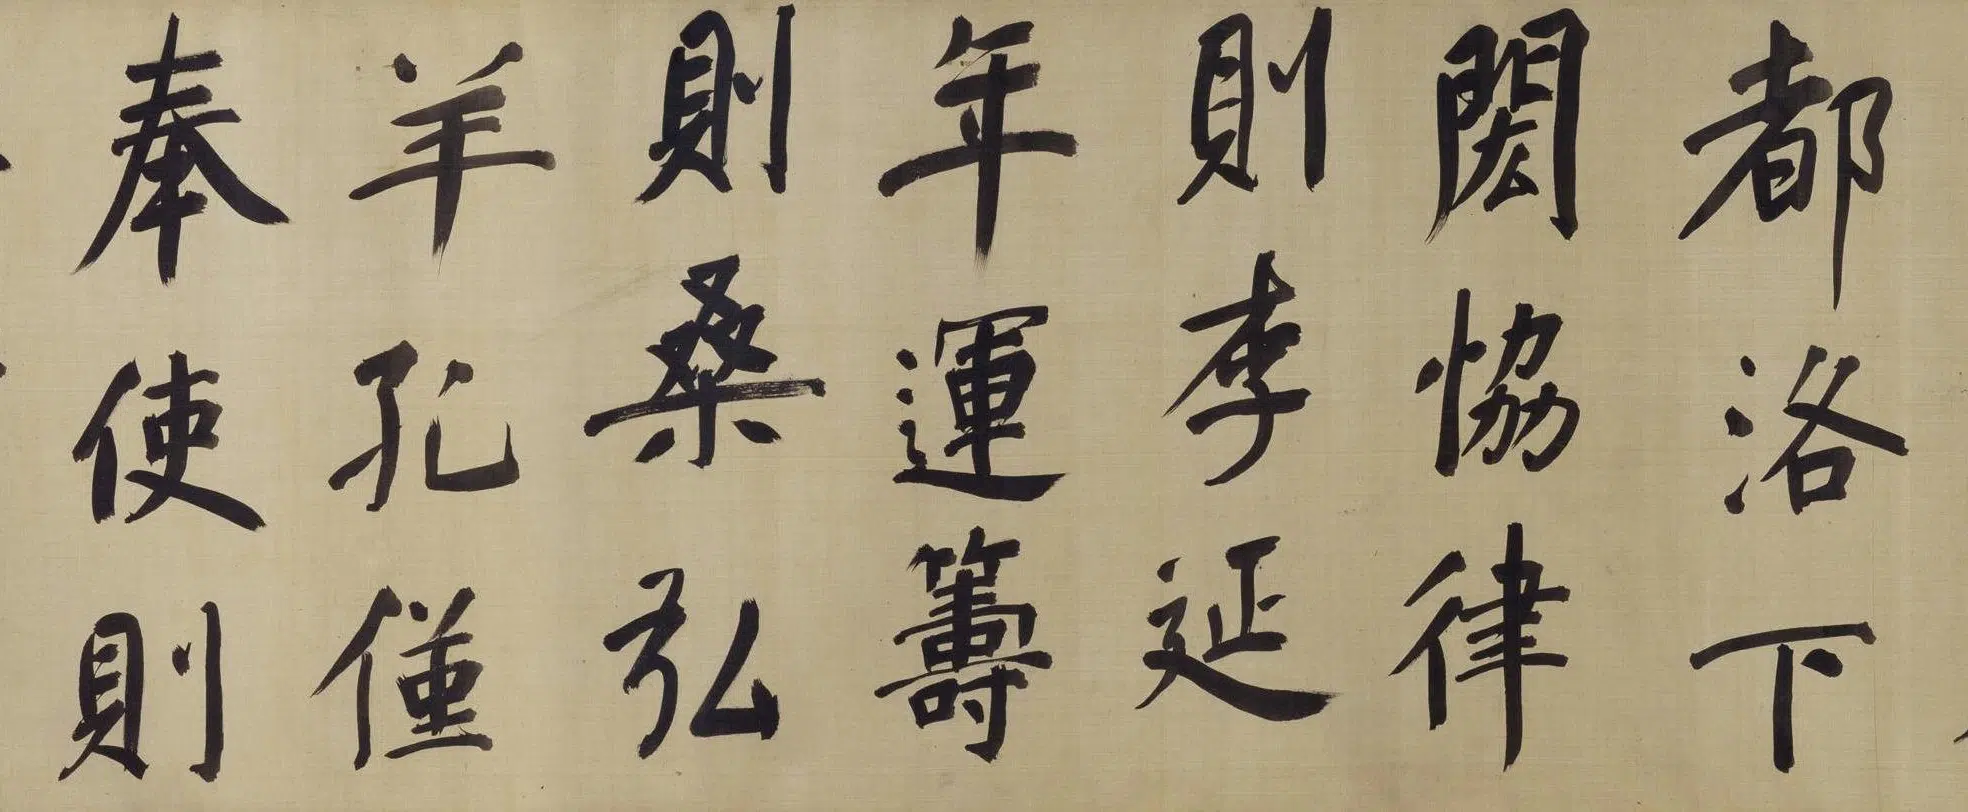 都洛下
閎恊律
則李延
年運籌
則桑弘
羊孔僅
奉使則